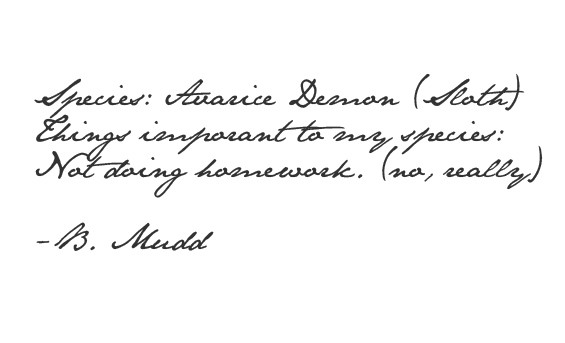 Species: Avarice Demon (Sloth)
Things imporant to my species:
Not doing homework. (no, really)
-B. Mudd